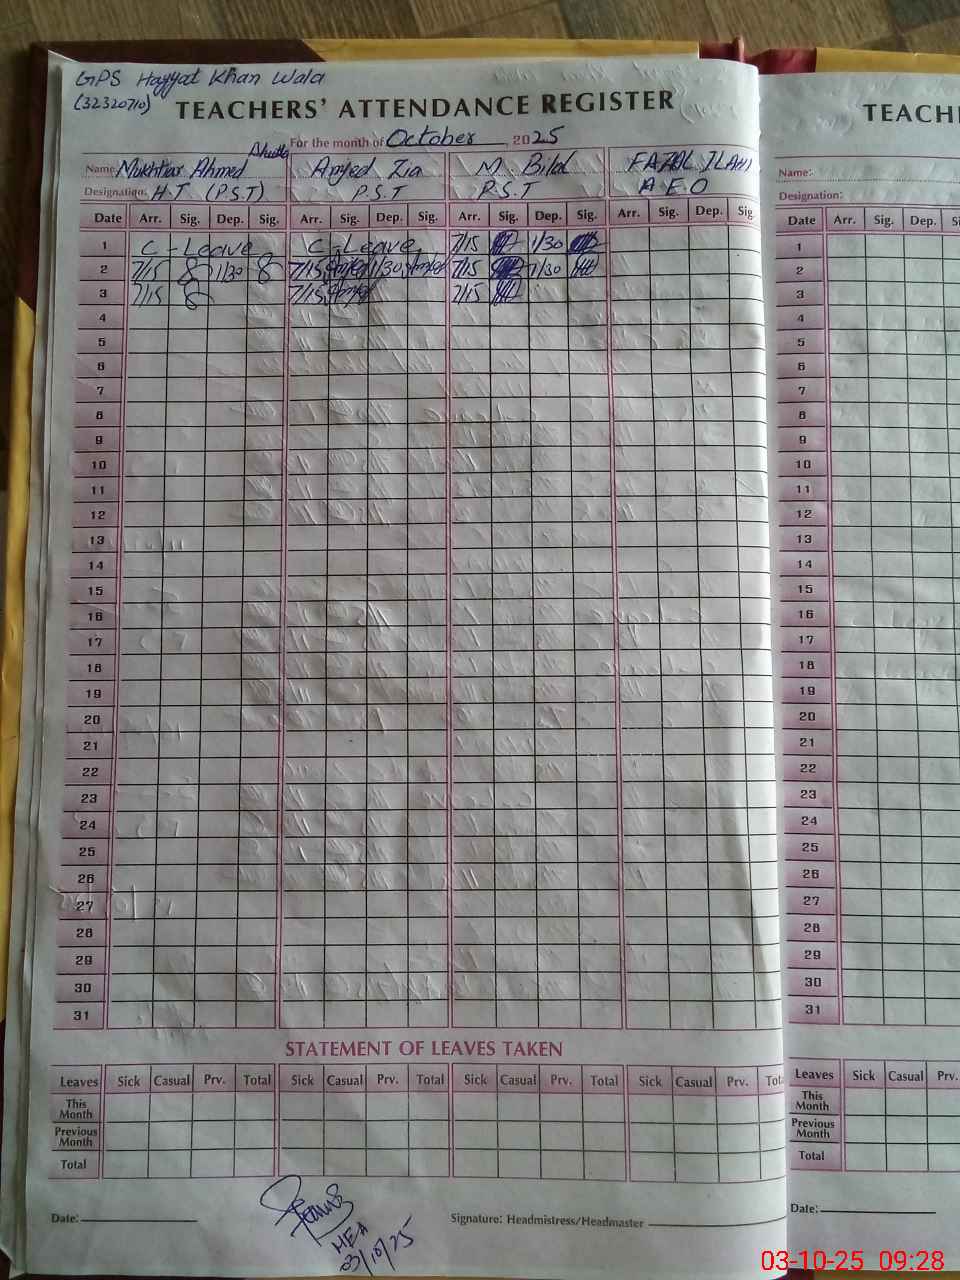 GPS Hayyat Khan Wala
(32320710)
TEACHERS' ATTENDANCE REGISTER
For the month of October, 2025
Name: Mukhtiar Ahmed Amjed Zia M. Bilal FAZAL ILAHI
Designation: H.T (P.S.T) P.S.T P.S.T A E O
Date Arr. Sig. Dep. Sig. Arr. Sig. Dep. Sig. Arr. Sig. Dep. Sig. Arr. Sig. Dep. Sig.
1 C-Leave C-Leave 7/15 1/30
2 7/15 1/30 7/15 1/30 7/15 1/30
3 7/15 7/15 7/15
4
5
6
7
8
9
10
11
12
13
14
15
16
17
18
19
20
21
22
23
24
25
26
27
28
29
30
31
STATEMENT OF LEAVES TAKEN
Leaves Sick Casual Prv. Total Sick Casual Prv. Total Sick Casual Prv. Total Sick Casual Prv. Tota
This Month
Previous Month
Total
MEA
03/10/25
Date: Signature: Headmistress/Headmaster
TEACH
Name:
Designation:
Date Arr. Sig. Dep. Sig.
1
2
3
4
5
6
7
8
9
10
11
12
13
14
15
16
17
18
19
20
21
22
23
24
25
26
27
28
29
30
31
Leaves Sick Casual Prv.
This Month
Previous Month
Total
Date:
03-10-25 09:28